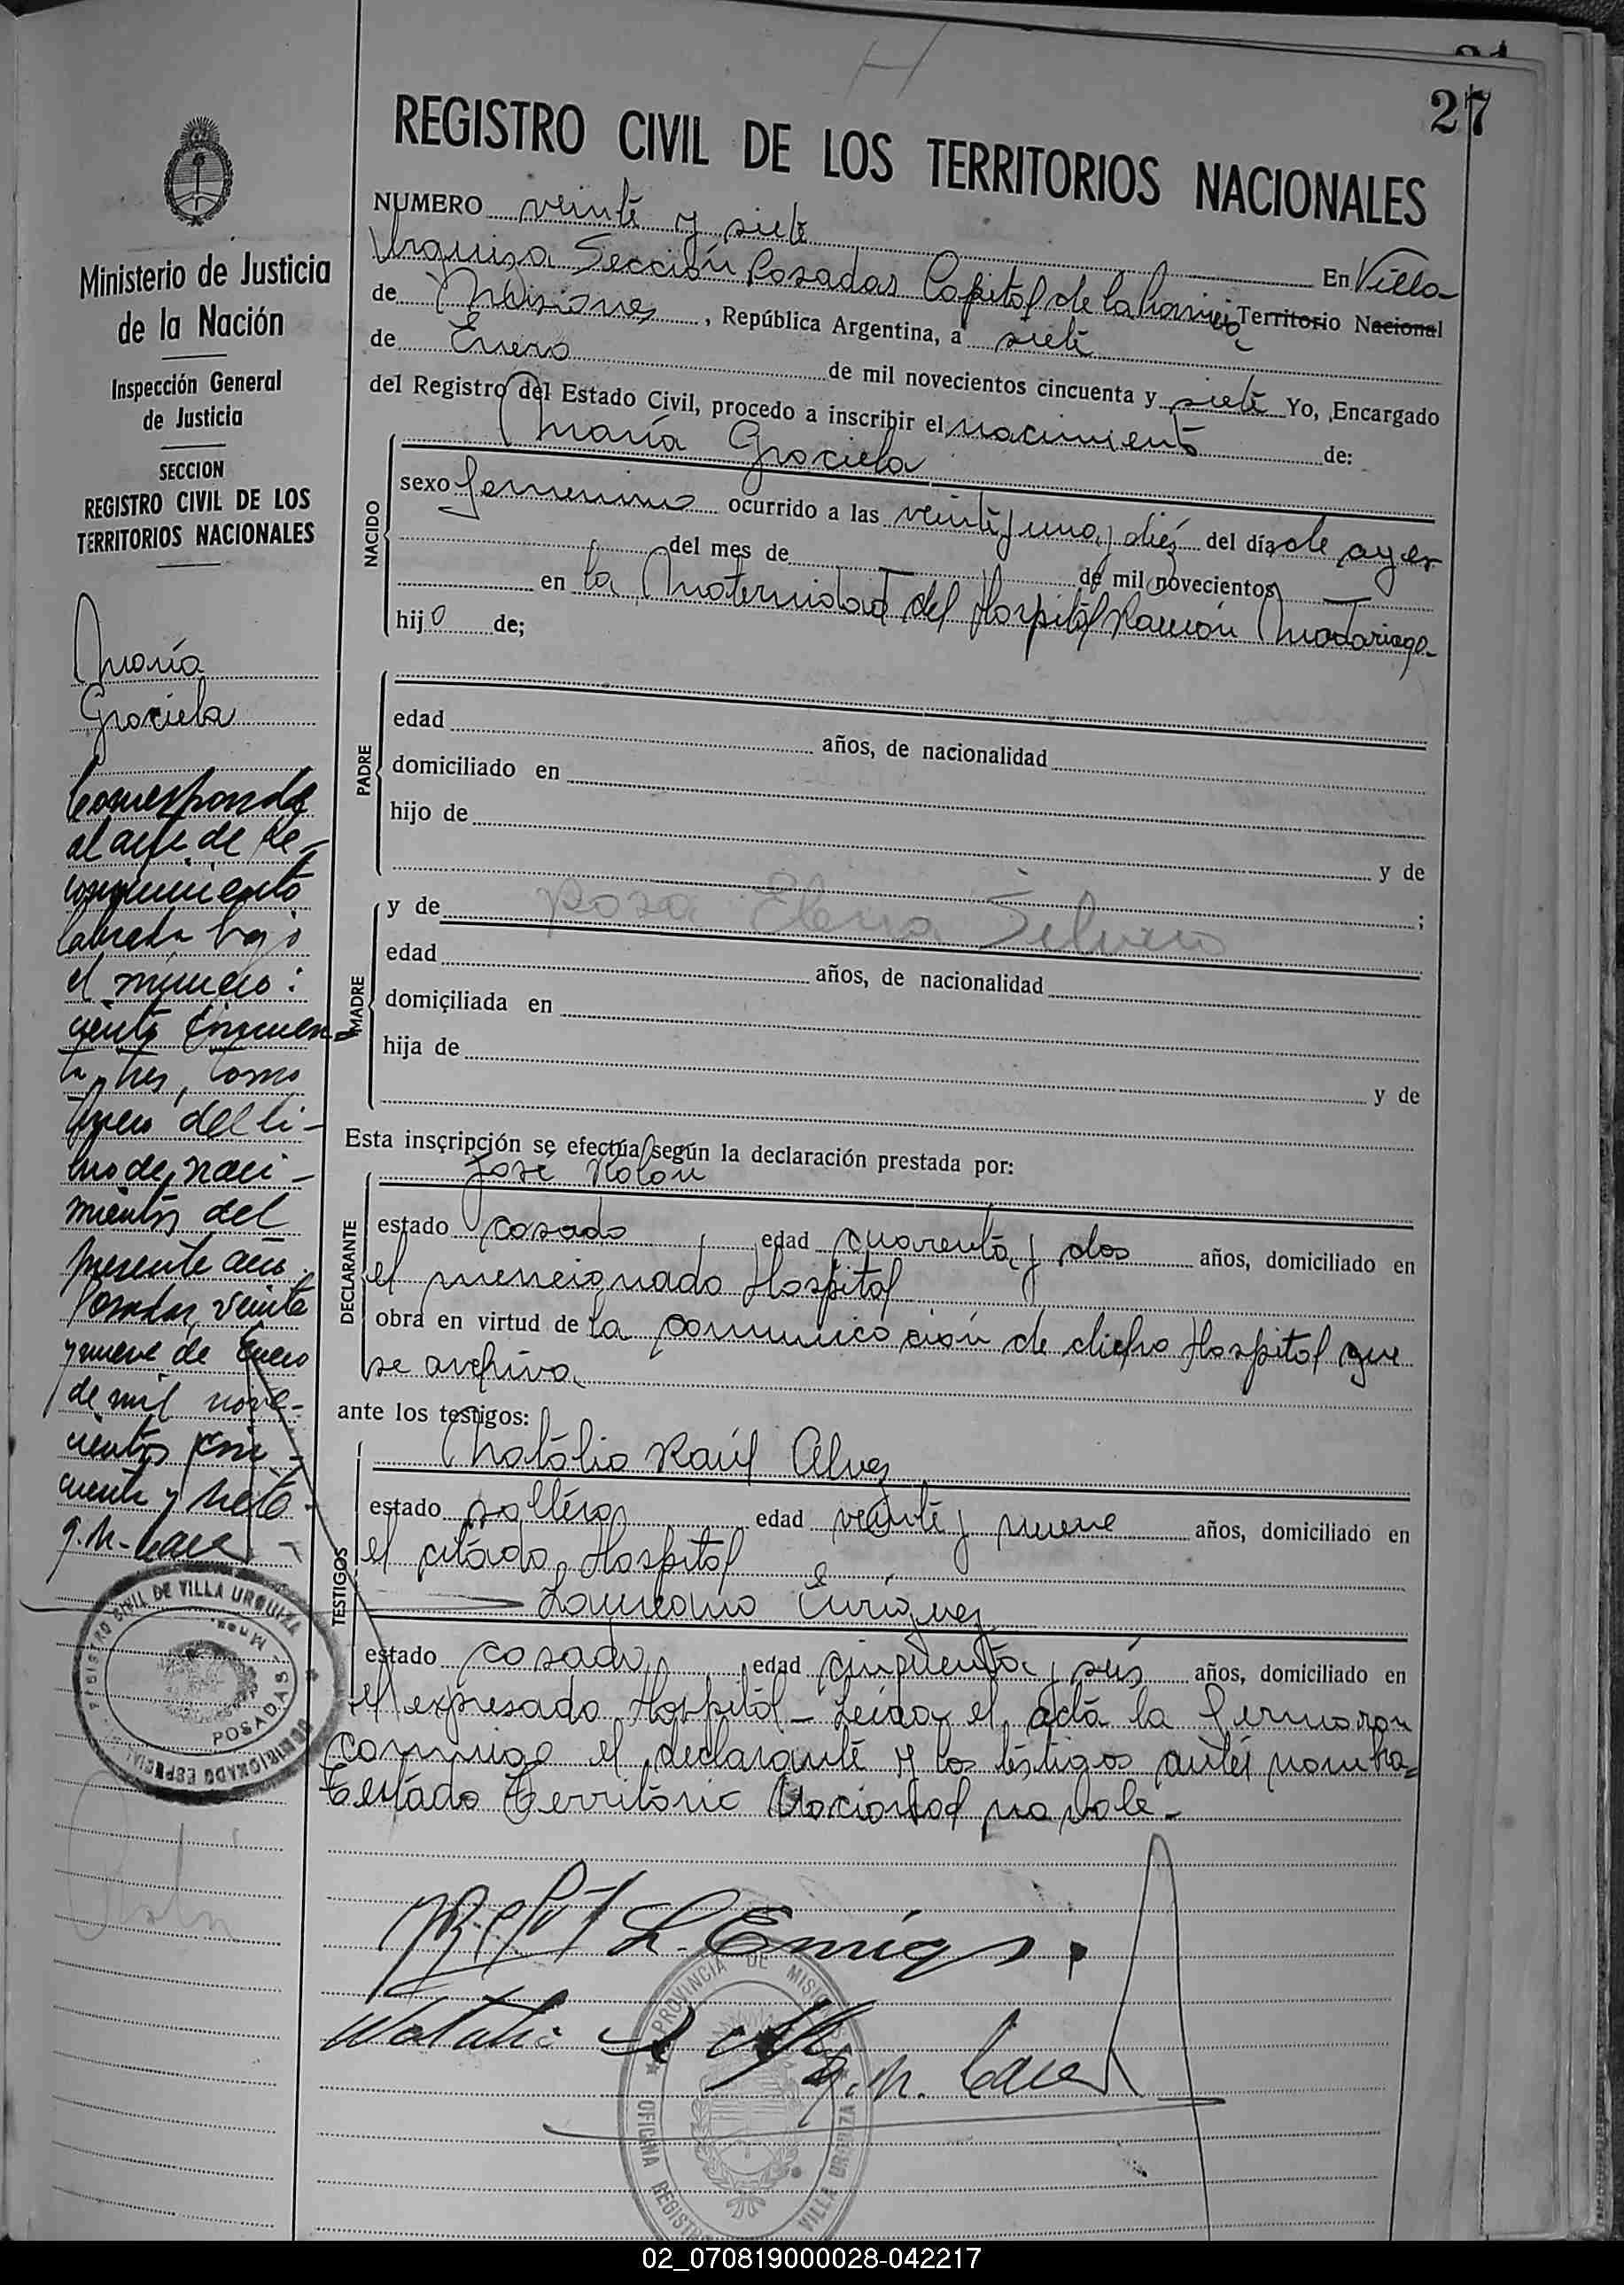 27
REGISTRO CIVIL DE LOS TERRITORIOS NACIONALES
Ministerio de Justicia
de la Nación
Inspección General
de Justicia
SECCION
REGISTRO CIVIL DE LOS
TERRITORIOS NACIONALES
María
Graciela
Corresponde
al acta de re-
conocimiento
labrada bajo
el número:
ciento cincuen-
ta y tres, tomo
del li-
bro de naci-
mientos del
presente año.
Posadas, veinte
y nueve de Enero
de mil nove-
cientos cin-
cuenta y siete
REGISTRO CIVIL DE VILLA URQUIZA
POSADAS
NUMERO veinte y siete En Villa
Urquiza Sección Posadas Capital de la Provincia Territorio Nacional
de Misiones, República Argentina, a siete
de Enero de mil novecientos cincuenta y siete Yo, Encargado
del Registro del Estado Civil, procedo a inscribir el nacimiento de:
NACIDO
María Graciela
sexo femenino ocurrido a las veinte y una y diez del día de ayer
del mes de de mil novecientos
en la Maternidad del Hospital Ramón Madariaga
hijo de;
PADRE
edad años, de nacionalidad
domiciliado en
hijo de
y de
MADRE
y de Rosa Elena Silvero ;
edad años, de nacionalidad
domiciliada en
hija de
y de
Esta inscripción se efectúa según la declaración prestada por:
DECLARANTE
José Rolón
estado casado edad cuarenta y dos años, domiciliado en
el mencionado Hospital
obra en virtud de la comunicación de dicho Hospital que
se archiva
ante los testigos:
TESTIGOS
Natalio Raúl Alvez
estado soltero edad veinte y nueve años, domiciliado en
el citado Hospital
Laureano Enriquez
estado casado edad cinquenta y seis años, domiciliado en
el expresado Hospital - Leída el acta la firmaron
conmigo el declarante y los testigos antes nombra=
Testado Territorio Nacional no vale -
L. Enriqz.
Natalio
PROVINCIA DE MISIONES
OFICINA REGISTRO
VILLA URQUIZA
02_070819000028-042217